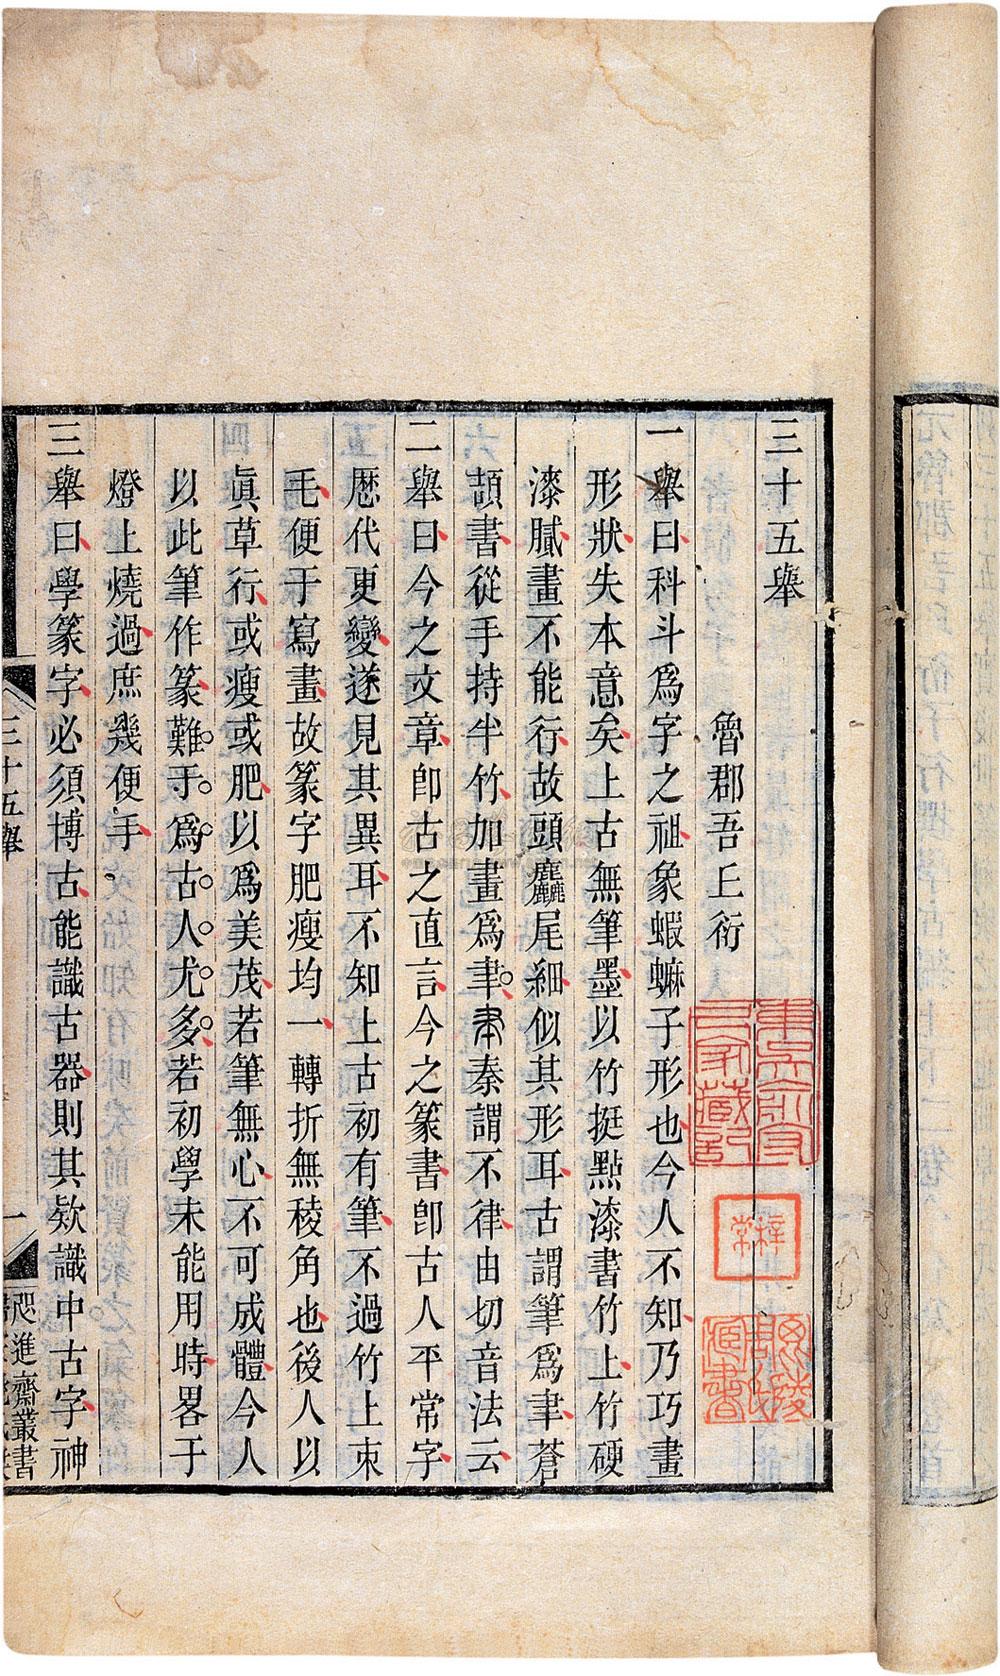 三十五舉
魯郡吾丘衍
一舉曰科斗爲字之祖象蝦蟆子形也今人不知乃巧畫
形狀失本意矣上古無筆墨以竹挺點漆書竹上竹硬
漆膩畫不能行故頭麤尾細似其形耳古謂筆爲聿蒼
頡書從手持半竹加畫爲聿秦謂不律由切音法云
二舉曰今之文章卽古之直言今之篆書卽古人平常字
歴代更變遂見其異耳不知上古初有筆不過竹上束
毛便于寫畫故篆字肥瘦均一轉折無稜角也後人以
眞草行或瘦或肥以爲美茂若筆無心不可成體今人
以此筆作篆難于爲古人尤多若初學未能用時畧于
燈上燒過庶幾便手
三舉曰學篆字必須博古能識古器則其欵識中古字神
三十五舉
一
咫進齋叢書